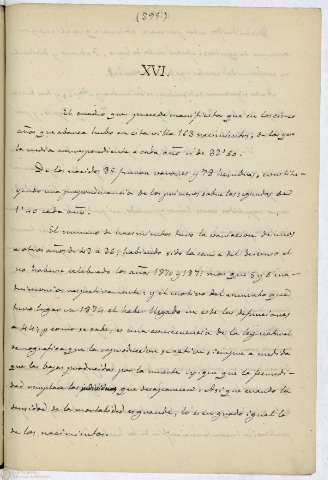 (894)
XVI.
El cuadro que precede manifiesta que en los cinco
años que abarca hubo en esta villa 163 nacimientos; de los que
la media correspondiente a cada año es de 32'60.
De los nacidos 85 fueron varones y 78 hembras, constitu-
yendo una preponderancia de los primeros sobre las segundas de
1'40 cada año.
El número de nacimientos tuvo la variación de unos
a otros años de 23 a 36; habiendo sido la causa del descenso el
no haberse celebrado los años 1870 y 1871 mas que 5 y 6 ma-
trimonios respectivamente; y el motivo del aumento que
tuvo lugar en 1874 el haber llegado en este las defunciones
a 44; y como se sabe, es una consecuencia de la ley natural
demográfica que la reproducción se active siempre a medida
que las bajas producidas por la muerte exigen que la fecundi-
dad reemplace los que desaparecen: Así que cuando la
densidad de la mortalidad es grande, lo es en grado igual la
de los nacimientos.